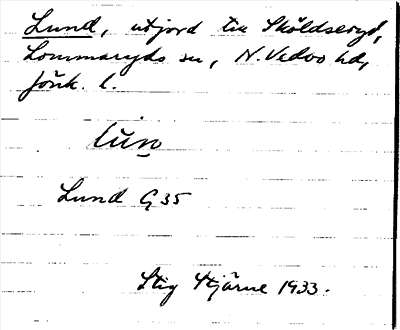 Lund, utjord till Sköldseryd,
Lommaryds sn, N. Vedbo hd,
Jönk. l.
lun
Lund G 35
Stig Stjärne 1933.